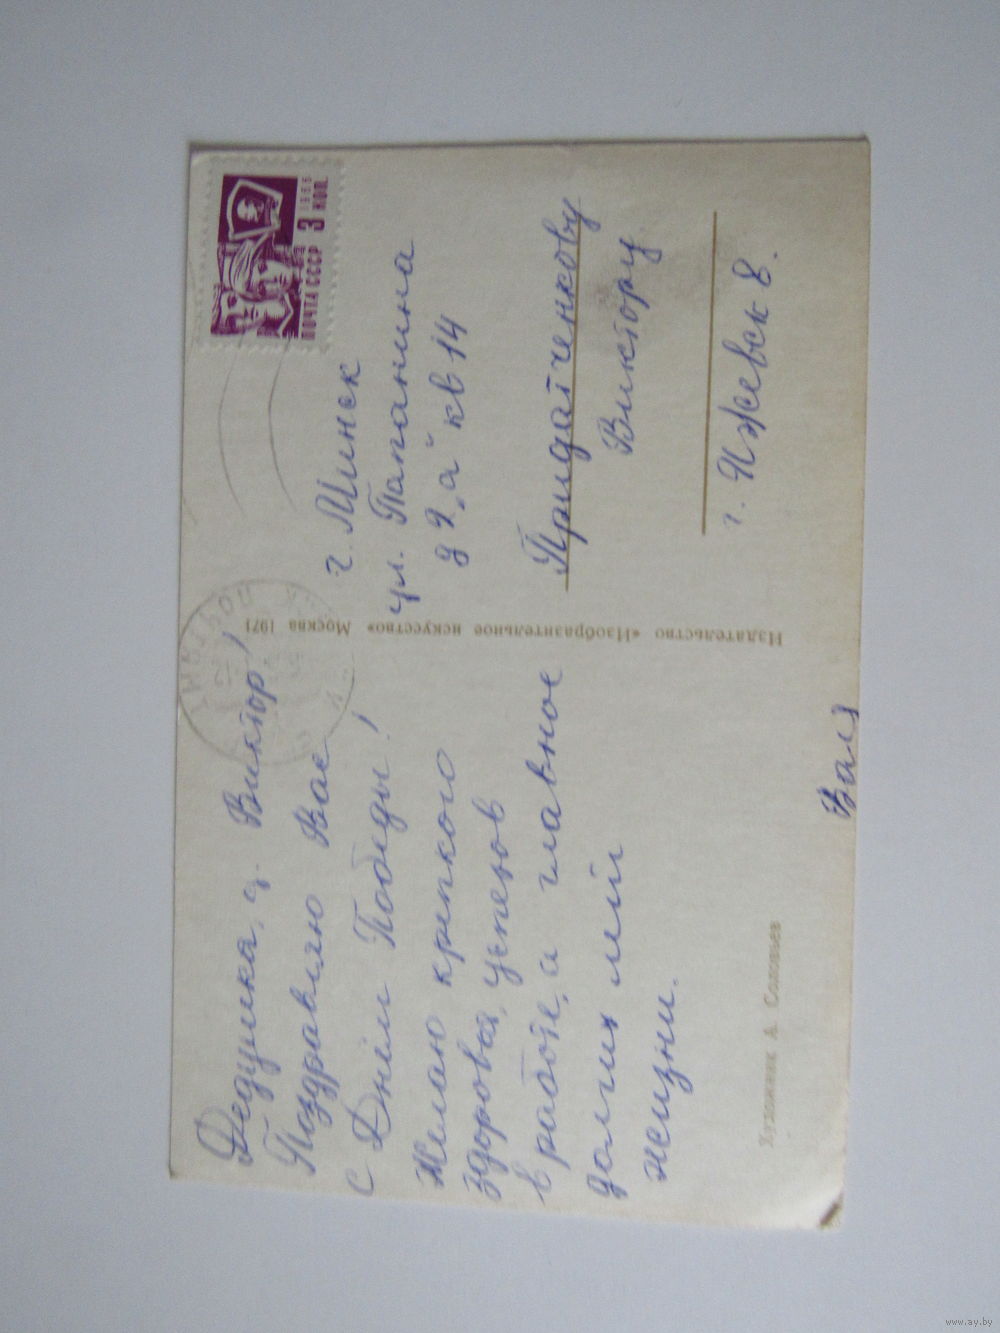 Дедушка, д. Виктор!
Поздравляю Вас
с Днём Победы!
Желаю крепкого
здоровья, успехов
в работе, а главное
долгих лет
жизни.
Валя
Художник А. Соловьев
Издательство «Изобразительное искусство» Москва 1971
ПОЧТА СССР 3 КОП.
1966
г. Минск
ул. Папанина
д 2 „а" кв 14
Придатченкову
Виктору
г. Ижевск 8.
www.ay.by